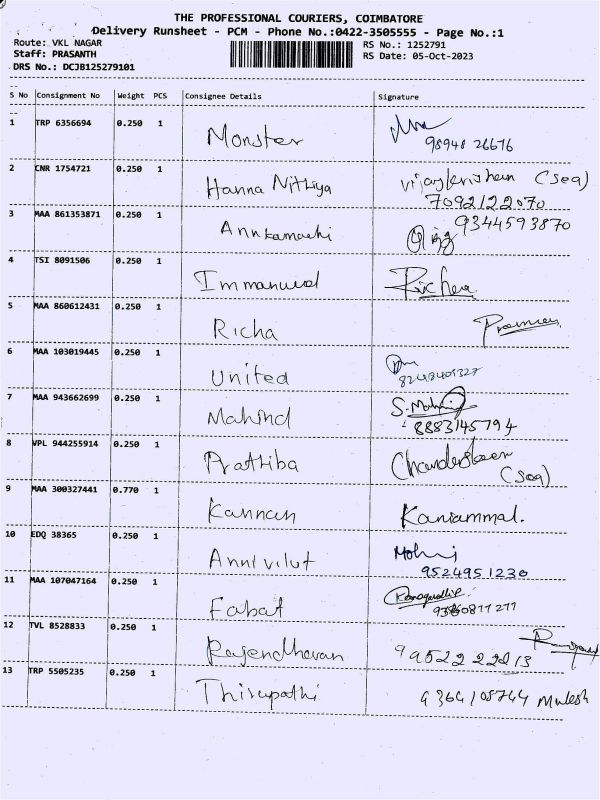 THE PROFESSIONAL COURIERS, COIMBATORE
Delivery Runsheet - PCM - Phone No.:0422-3505555 - Page No.:1
Route: VKL NAGAR
RS No.: 1252791
Staff: PRASANTH
RS Date: 05-Oct-2023
DRS No.: DCJB125279101
S No Consignment No Weight PCS Consignee Details Signature
1 TRP 6356694 0.250 1 Monster
98948 26676
2 CNR 1754721 0.250 1 Hanna Nithiya (sea)
7092122070
3 MAA 861353871 0.250 1 9344593870
4 TSI 8091506 0.250 1 Immanuel Richer
5 MAA 860612431 0.250 1 Richa
6 MAA 103019445 0.250 1 United
7 MAA 943662699 0.250 1 Mahind S. Mohni
8883145794
8 VPL 944255914 0.250 1 Prathiba
(sea)
9 MAA 300327441 0.770 1 Kannan Kaniammal.
10 EDQ 38365 0.250 1 Annivilut Mohni
9524951230
11 MAA 107047164 0.250 1 Fabat
12 TVL 8528833 0.250 1 Rajendharan 9952222213
13 TRP 5505235 0.250 1 Thirupathi 9364108744 Mulesh